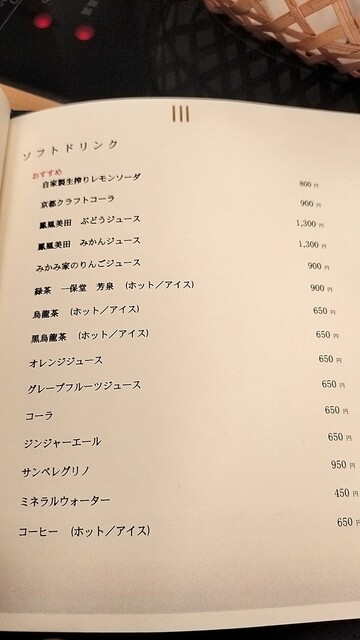 ソフトドリンク
おすすめ
自家製生搾りレモンソーダ 800円
京都クラフトコーラ 900円
鳳凰美田 ぶどうジュース 1,300円
鳳凰美田 みかんジュース 1,300円
みかみ家のりんごジュース 900円
緑茶 一保堂 芳泉 (ホット/アイス) 900円
烏龍茶 (ホット/アイス) 650円
黒烏龍茶 (ホット/アイス) 650円
オレンジジュース 650円
グレープフルーツジュース 650円
コーラ 650円
ジンジャーエール 650円
サンペレグリノ 950円
ミネラルウォーター 450円
コーヒー (ホット/アイス) 650円